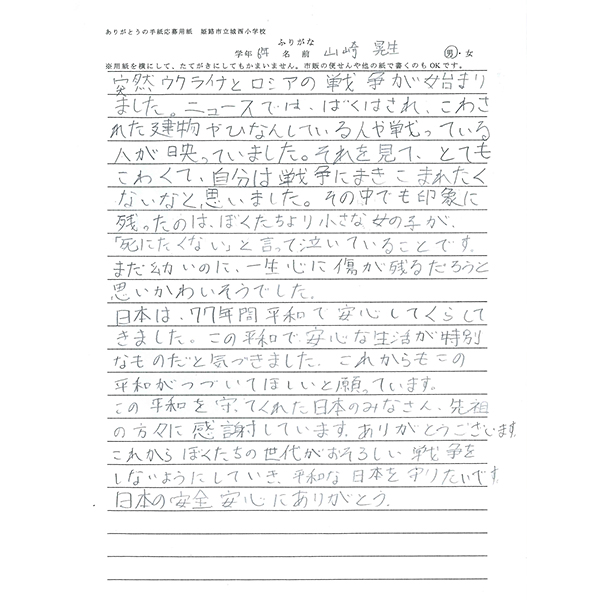 ありがとうの手紙応募用紙　姫路市立城西小学校
ふりがな
学年 6年 名前 山崎 晃生 男・女
※用紙を横にして、たてがきにしてもかまいません。市販の便せんや他の紙で書くのもOKです。
突然ウクライナとロシアの戦争が始まり
ました。ニュースでは、ばくはされ、こわさ
れた建物やひなんしている人や戦っている
人が映っていました。それを見て、とても
こわくて、自分は戦争にまきこまれたく
ないなと思いました。その中でも印象に
残ったのは、ぼくたちより小さな女の子が、
「死にたくない」と言って泣いていることです。
まだ幼いのに、一生心に傷が残るだろうと
思いかわいそうでした。
日本は、77年間平和で安心してくらして
きました。この平和で、安心な生活が特別
なものだと気づきました。これからもこの
平和がつづいてほしいと願っています。
この平和を守ってくれた日本のみなさん、先祖
の方々に感謝しています。ありがとうございます。
これからぼくたちの世代がおそろしい戦争を
しないようにしていき、平和な日本を守りたいです。
日本の安全安心にありがとう。